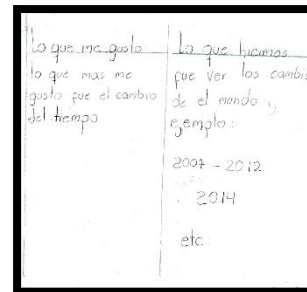 Lo que me gusto
lo que mas me
gusto fue el cambio
del tiempo
Lo que hicimos
fue ver los cambi
de el mundo y
ejemplo:
2007 - 2012
2014
etc.